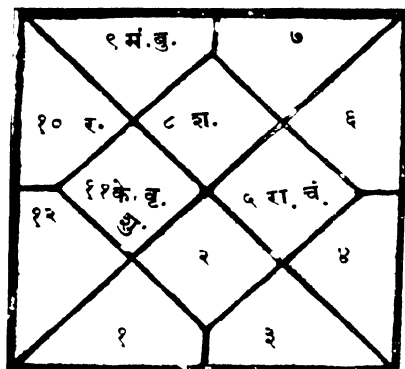 ९ मं. बु.
७
१० र.
८ श.
६
११के. वृ.
शु.
५ रा. चं.
१२
२
४
१
३